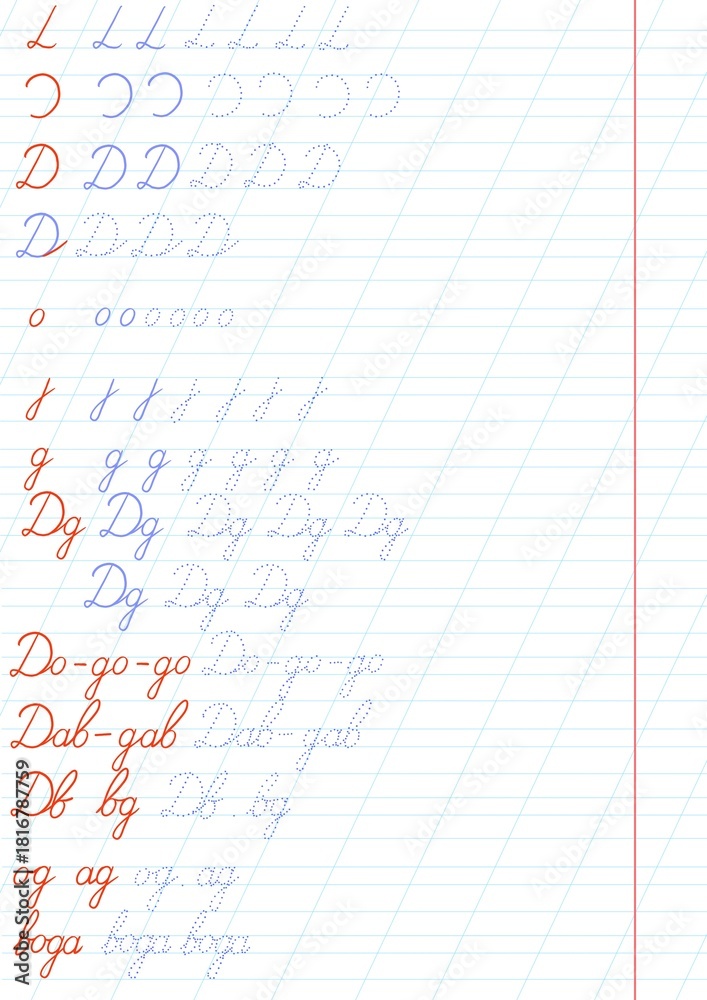 D D D D D D
D D D D
o o o o o o o
g g g g g g g
Dg Dg Dg Dg Dg
Dg Dg Dg
Do-go-go Do-go-go
Dab-gab Dab-gab
Db bg Db. bg
og ag og. ag
boga boga boga
Adobe Stock | #1816787759